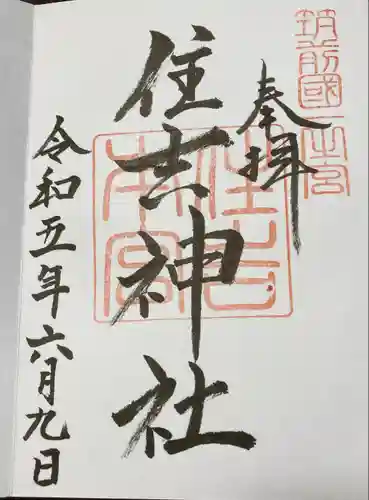 筑前國
一之宮
奉拝
住吉神社
住吉
本宮
令和五年六月九日